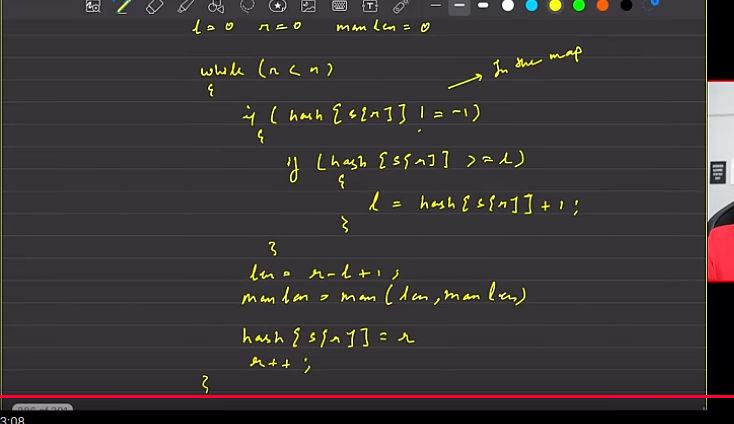 l = 0 r = 0 maxlen = 0
while (r < n)
{
In the map
if ( hash [s[r]] != -1)
{
if (hash [s[r]] >= l)
{
l = hash[s[r]] + 1 ;
}
}
len = r - l + 1 ;
maxlen = max (len, maxlen)
hash [s[r]] = r
r++ ;
}
3:08